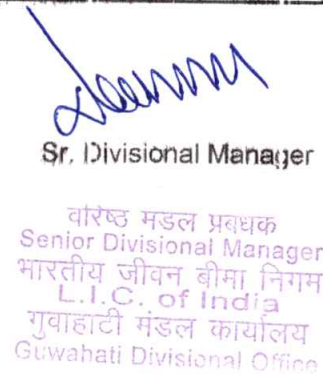 Sr. Divisional Manager
वरिष्ठ मंडल प्रबंधक
Senior Divisional Manager
भारतीय जीवन बीमा निगम
L.I.C. of India
गुवाहाटी मंडल कार्यालय
Guwahati Divisional Office